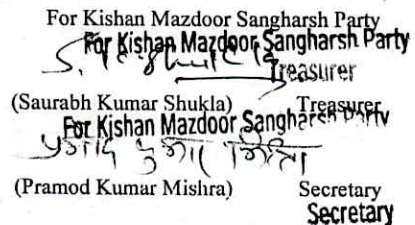 For Kishan Mazdoor Sangharsh Party
For Kishan Mazdoor Sangharsh Party
Treasurer
(Saurabh Kumar Shukla) Treasurer
For Kishan Mazdoor Sangharsh Party
प्रमोद कुमार मिश्रा
(Pramod Kumar Mishra) Secretary
Secretary